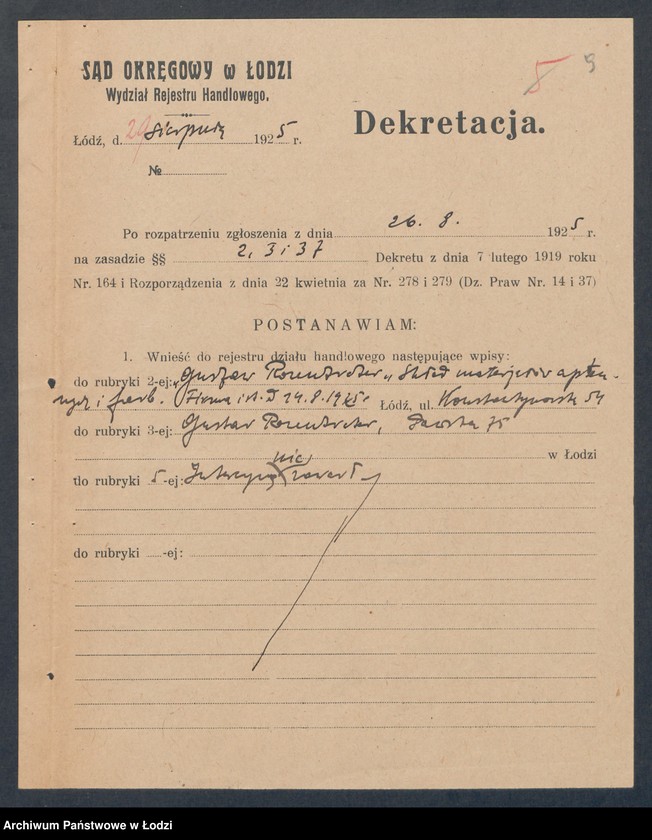 8 9
SĄD OKRĘGOWY w ŁODZI
Wydział Rejestru Handlowego.
Dekretacja.
Łódź, d. 29 Sierpnia 1925 r.
№
Po rozpatrzeniu zgłoszenia z dnia 26. 8. 1925 r.
na zasadzie §§ 2, 3 i 37 Dekretu z dnia 7 lutego 1919 roku
Nr. 164 i Rozporządzenia z dnia 22 kwietnia za Nr. 278 i 279 (Dz. Praw Nr. 14 i 37)
POSTANAWIAM:
1. Wnieść do rejestru działu handlowego następujące wpisy:
do rubryki 2-ej: „Gustaw " Skład materjałów aptecz-
nych i farb. Firma ist. 24.8.1925 r Łódź, ul. Konstantynowska 54
do rubryki 3-ej: Gustaw 75
w Łodzi
do rubryki 5-ej: Intercyzy nie zawarł
do rubryki -ej:
Archiwum Państwowe w Łodzi